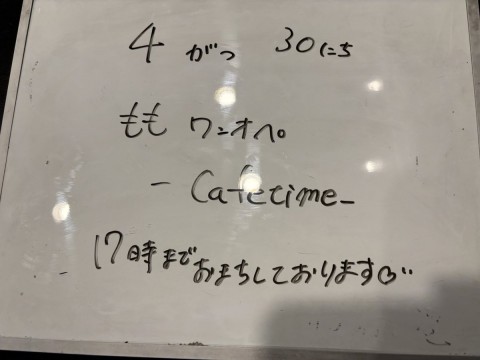 4がつ 30にち
もも ワンオペ。
- Cafetime -
17時まで おまちしております♡¨